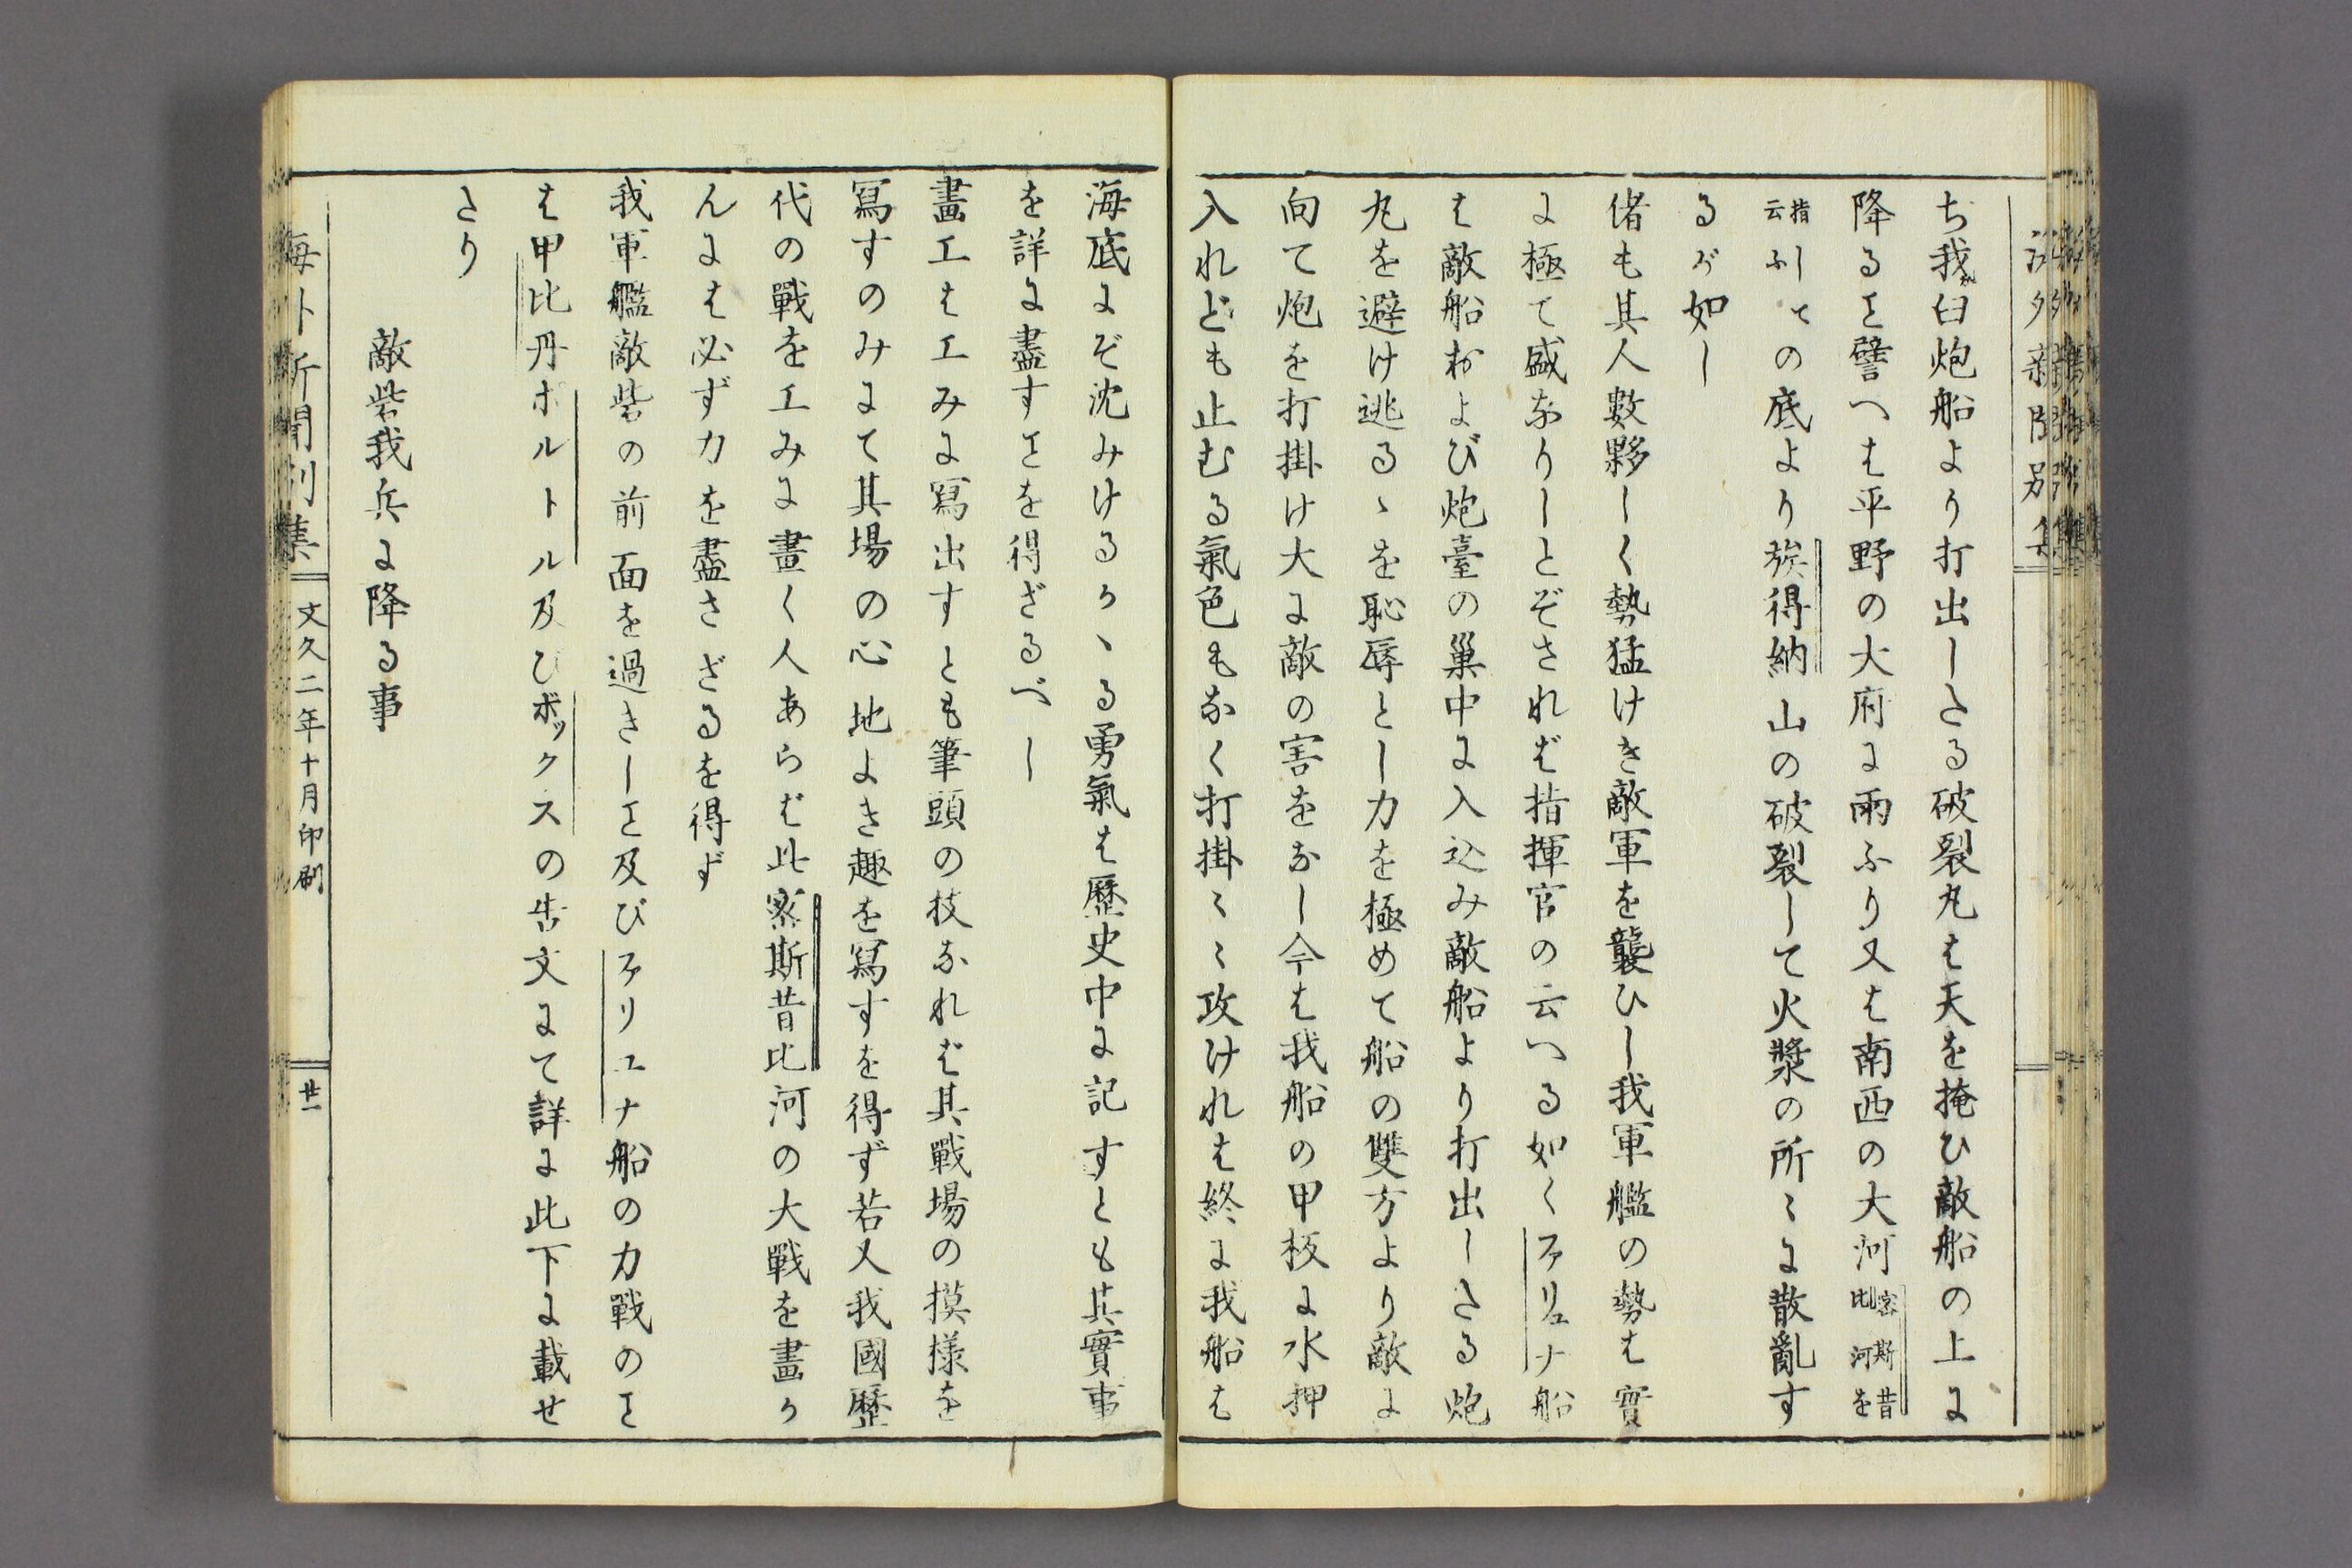 ち我臼炮船より打出しさる破裂丸は天を掩ひ敵船の上に
降るヿ譬へは平野の大府に雨ふり又は南西の大河密斯昔比河を
指し云ふヿの底より族得納山の破裂して火漿の所々に散亂す
るが如し
偖も其人數夥しく勢猛けき敵軍を襲ひし我軍艦の勢は實
に極て盛なりしとぞされば指揮官の云へる如くヲリユナ船
は敵船および炮臺の巢中に入込み敵船より打出しさる炮
丸を避け逃るゝを恥辱とし力を極めて船の雙方より敵に
向て炮を打掛け大に敵の害をなし今は我船の甲板に水押
入れども止むる氣色もなく打掛々々攻けれは終に我船は
海底にぞ沈みけるかゝる勇氣は歷史中に記すとも其實事
を詳に盡すヿを得ざるべし
畫工は工みに寫出すとも筆頭の技なれば其戰場の摸樣を
寫すのみにて其場の心地よき趣を寫すを得ず若又我國歷
代の戰を工みに畫く人あらば此密斯昔比河の大戰を畫か
んには必ず力を盡さざるを得ず
我軍艦敵砦の前面を過きしヿ及びヲリユナ船の力戰のヿ
は甲比丹ポルトル及びボックスの告文にて詳に此下に載せ
さり
敵砦我兵に降る事
海外新聞別集 文久二年十月印刷 廿一